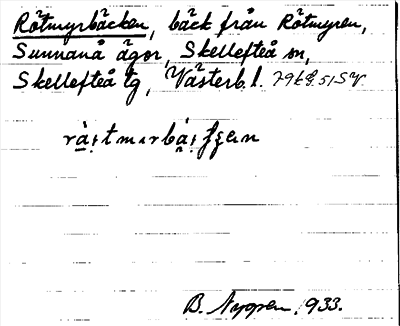 Rötmyrbäcken, bäck från Rötmyren,
Sunnanå ägor, Skellefteå sn,
Skellefteå tg, Västerb. l.
B. Nygren, 933.